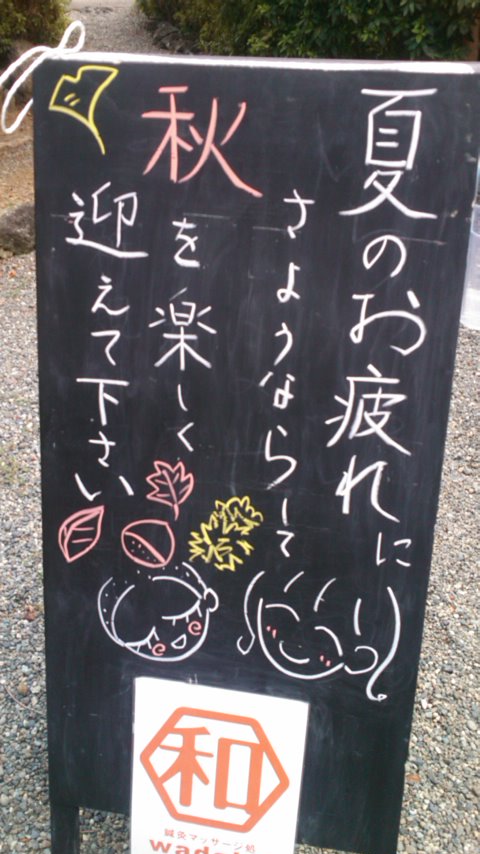 夏のお疲れに
さようならして
秋を楽しく
迎えて下さい
和
鍼灸マッサージ処